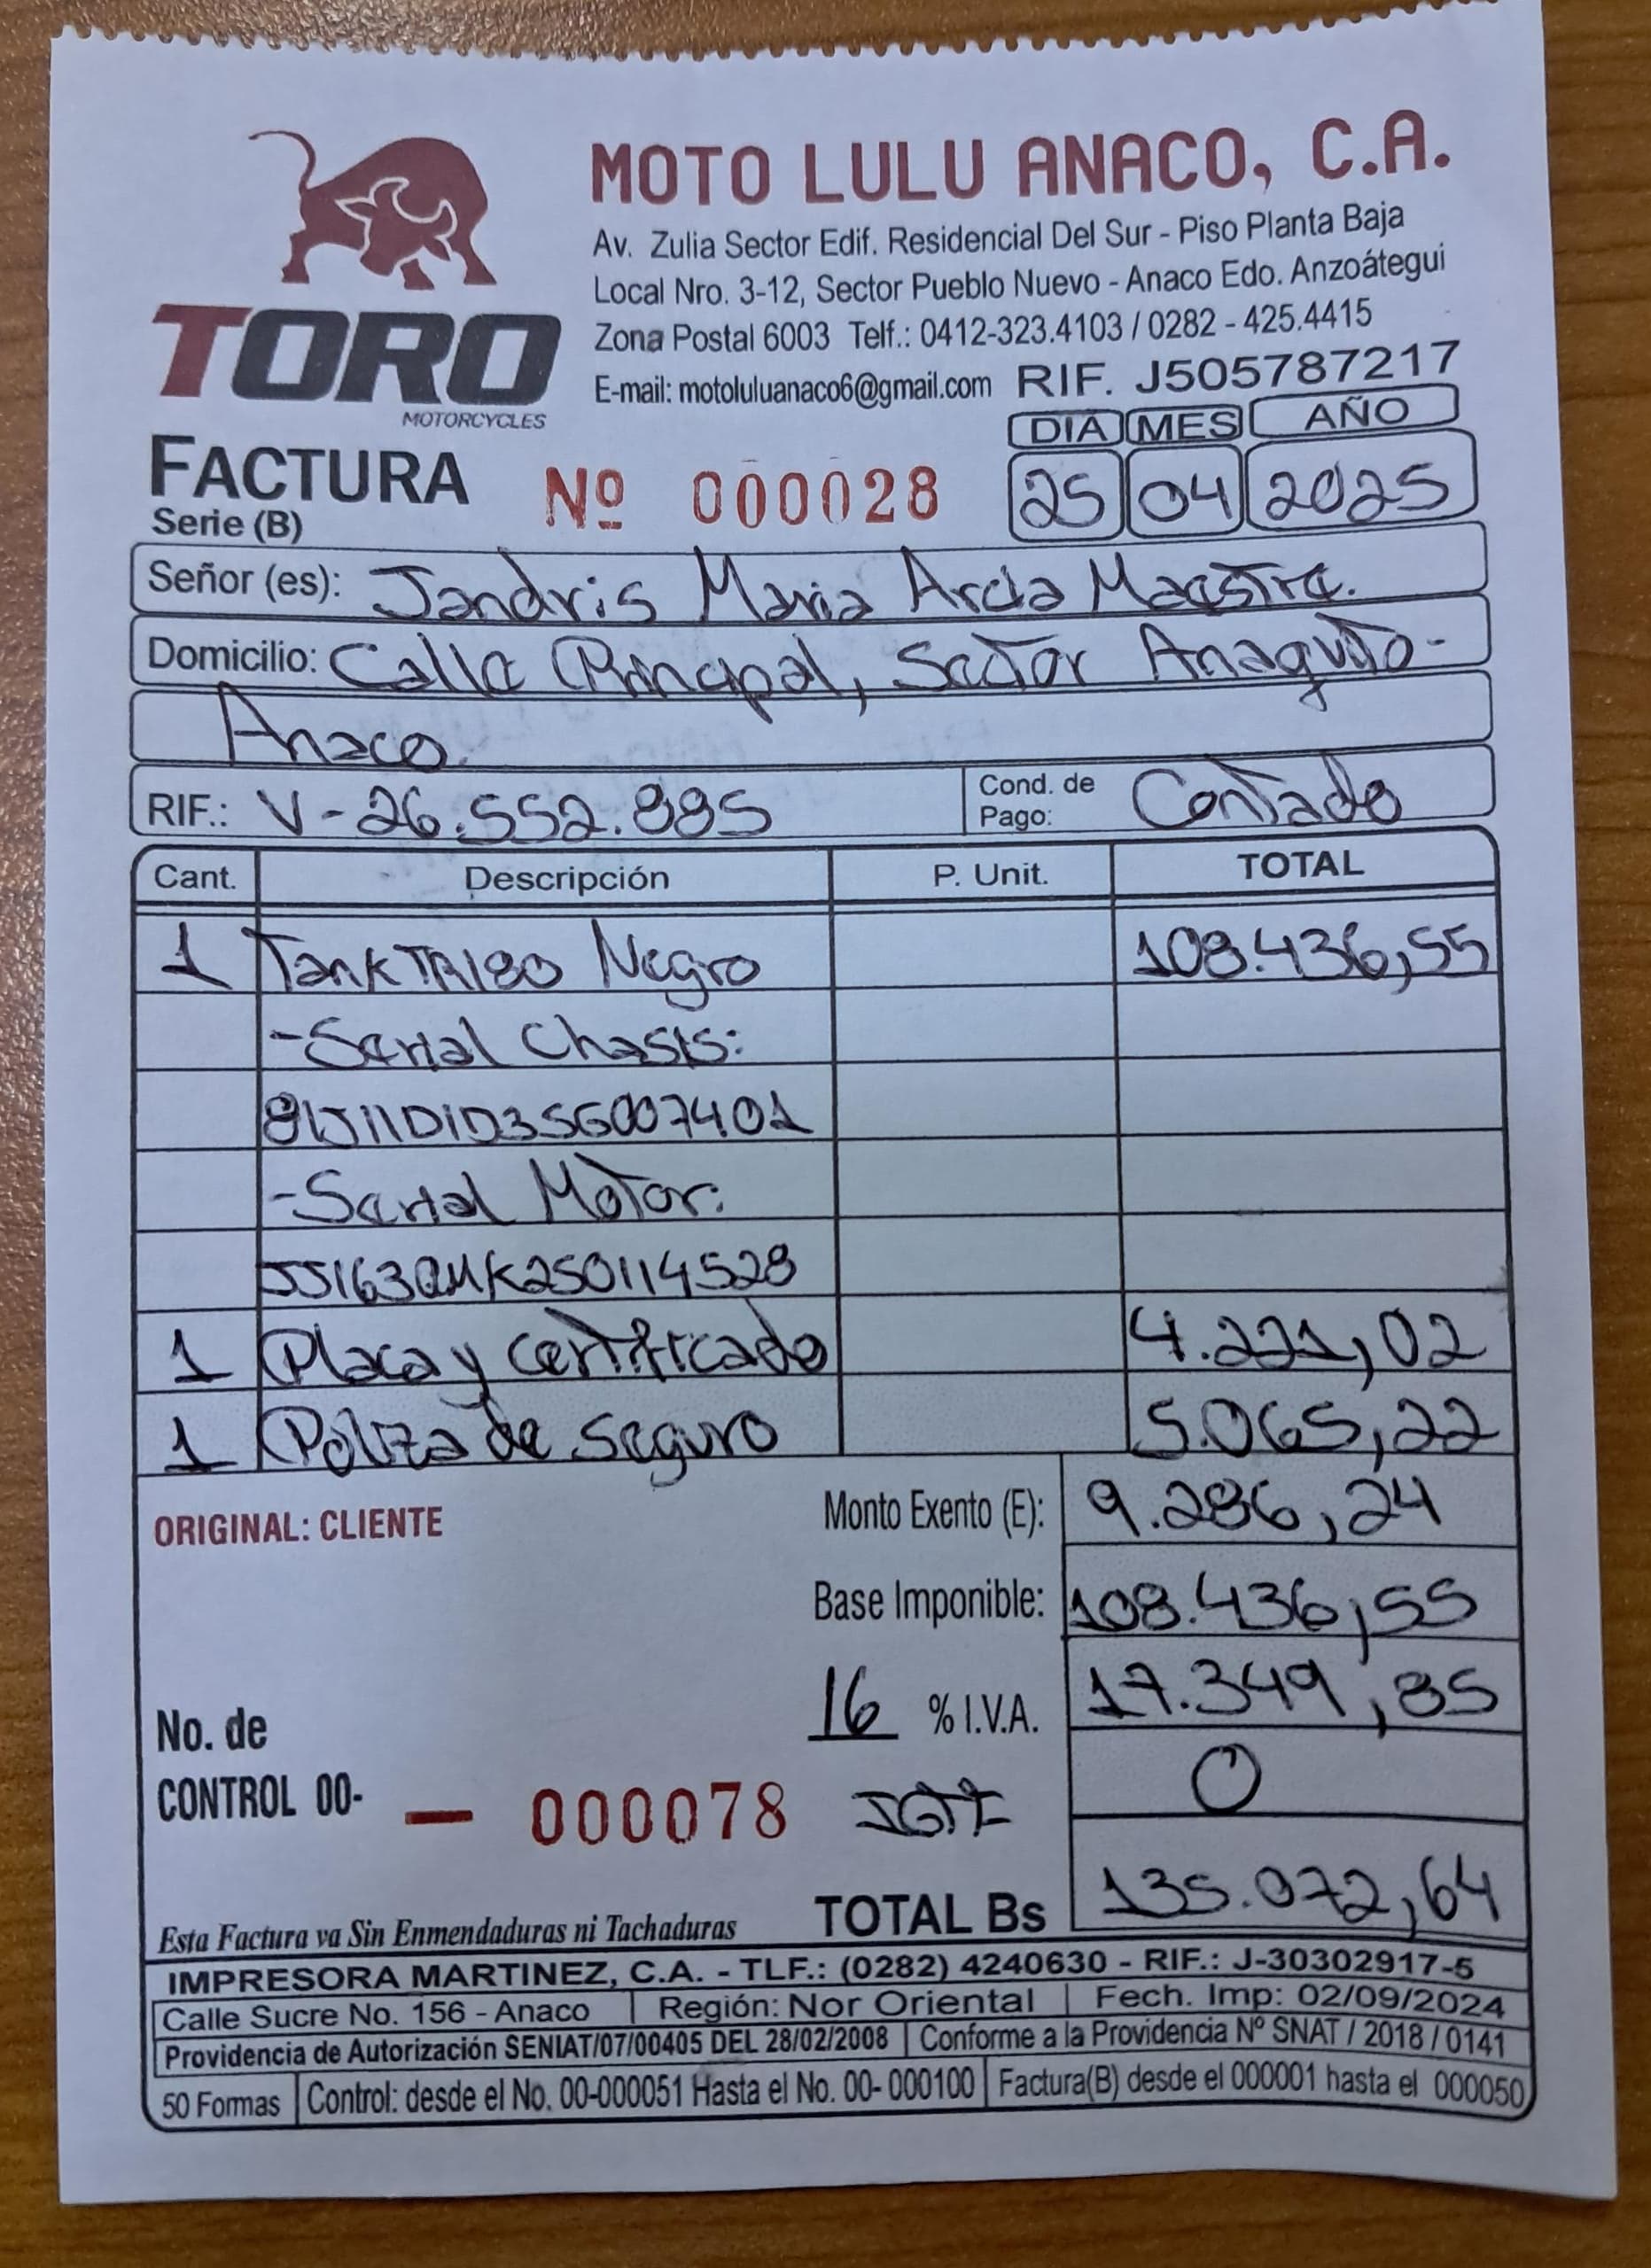 MOTO LULU ANACO, C.A.
Av. Zulia Sector Edif. Residencial Del Sur - Piso Planta Baja
Local Nro. 3-12, Sector Pueblo Nuevo - Anaco Edo. Anzoátegui
Zona Postal 6003 Telf.: 0412-323.4103 / 0282 - 425.4415
E-mail: motoluluanaco6@gmail.com RIF. J505787217
TORO
MOTORCYCLES
DIA MES AÑO
FACTURA Nº 000028 25 04 2025
Serie (B)
Señor (es): Jandris Maria Arcia Maestre.
Domicilio: Calle Principal, Sector Anaquito-
Anaco.
RIF.: V-26.552.885 Cond. de Pago: Contado
Cant. Descripción P. Unit. TOTAL
1 Tank TR180 Negro 108.436,55
-Serial Chasis:
-Serial Motor:
JJ163QMK250114528
1 Placa y certificado 4.221,02
1 Poliza de Seguro 5.065,22
ORIGINAL: CLIENTE Monto Exento (E): 9.286,24
Base Imponible: 108.436,55
16 % I.V.A. 17.349,85
No. de
CONTROL 00- — 000078 IGTF 0
Esta Factura va Sin Enmendaduras ni Tachaduras TOTAL Bs 135.072,64
IMPRESORA MARTINEZ, C.A. - TLF.: (0282) 4240630 - RIF.: J-30302917-5
Calle Sucre No. 156 - Anaco Región: Nor Oriental Fech. Imp: 02/09/2024
Providencia de Autorización SENIAT/07/00405 DEL 28/02/2008 Conforme a la Providencia Nº SNAT / 2018 / 0141
50 Formas Control: desde el No. 00-000051 Hasta el No. 00- 000100 Factura(B) desde el 000001 hasta el 000050